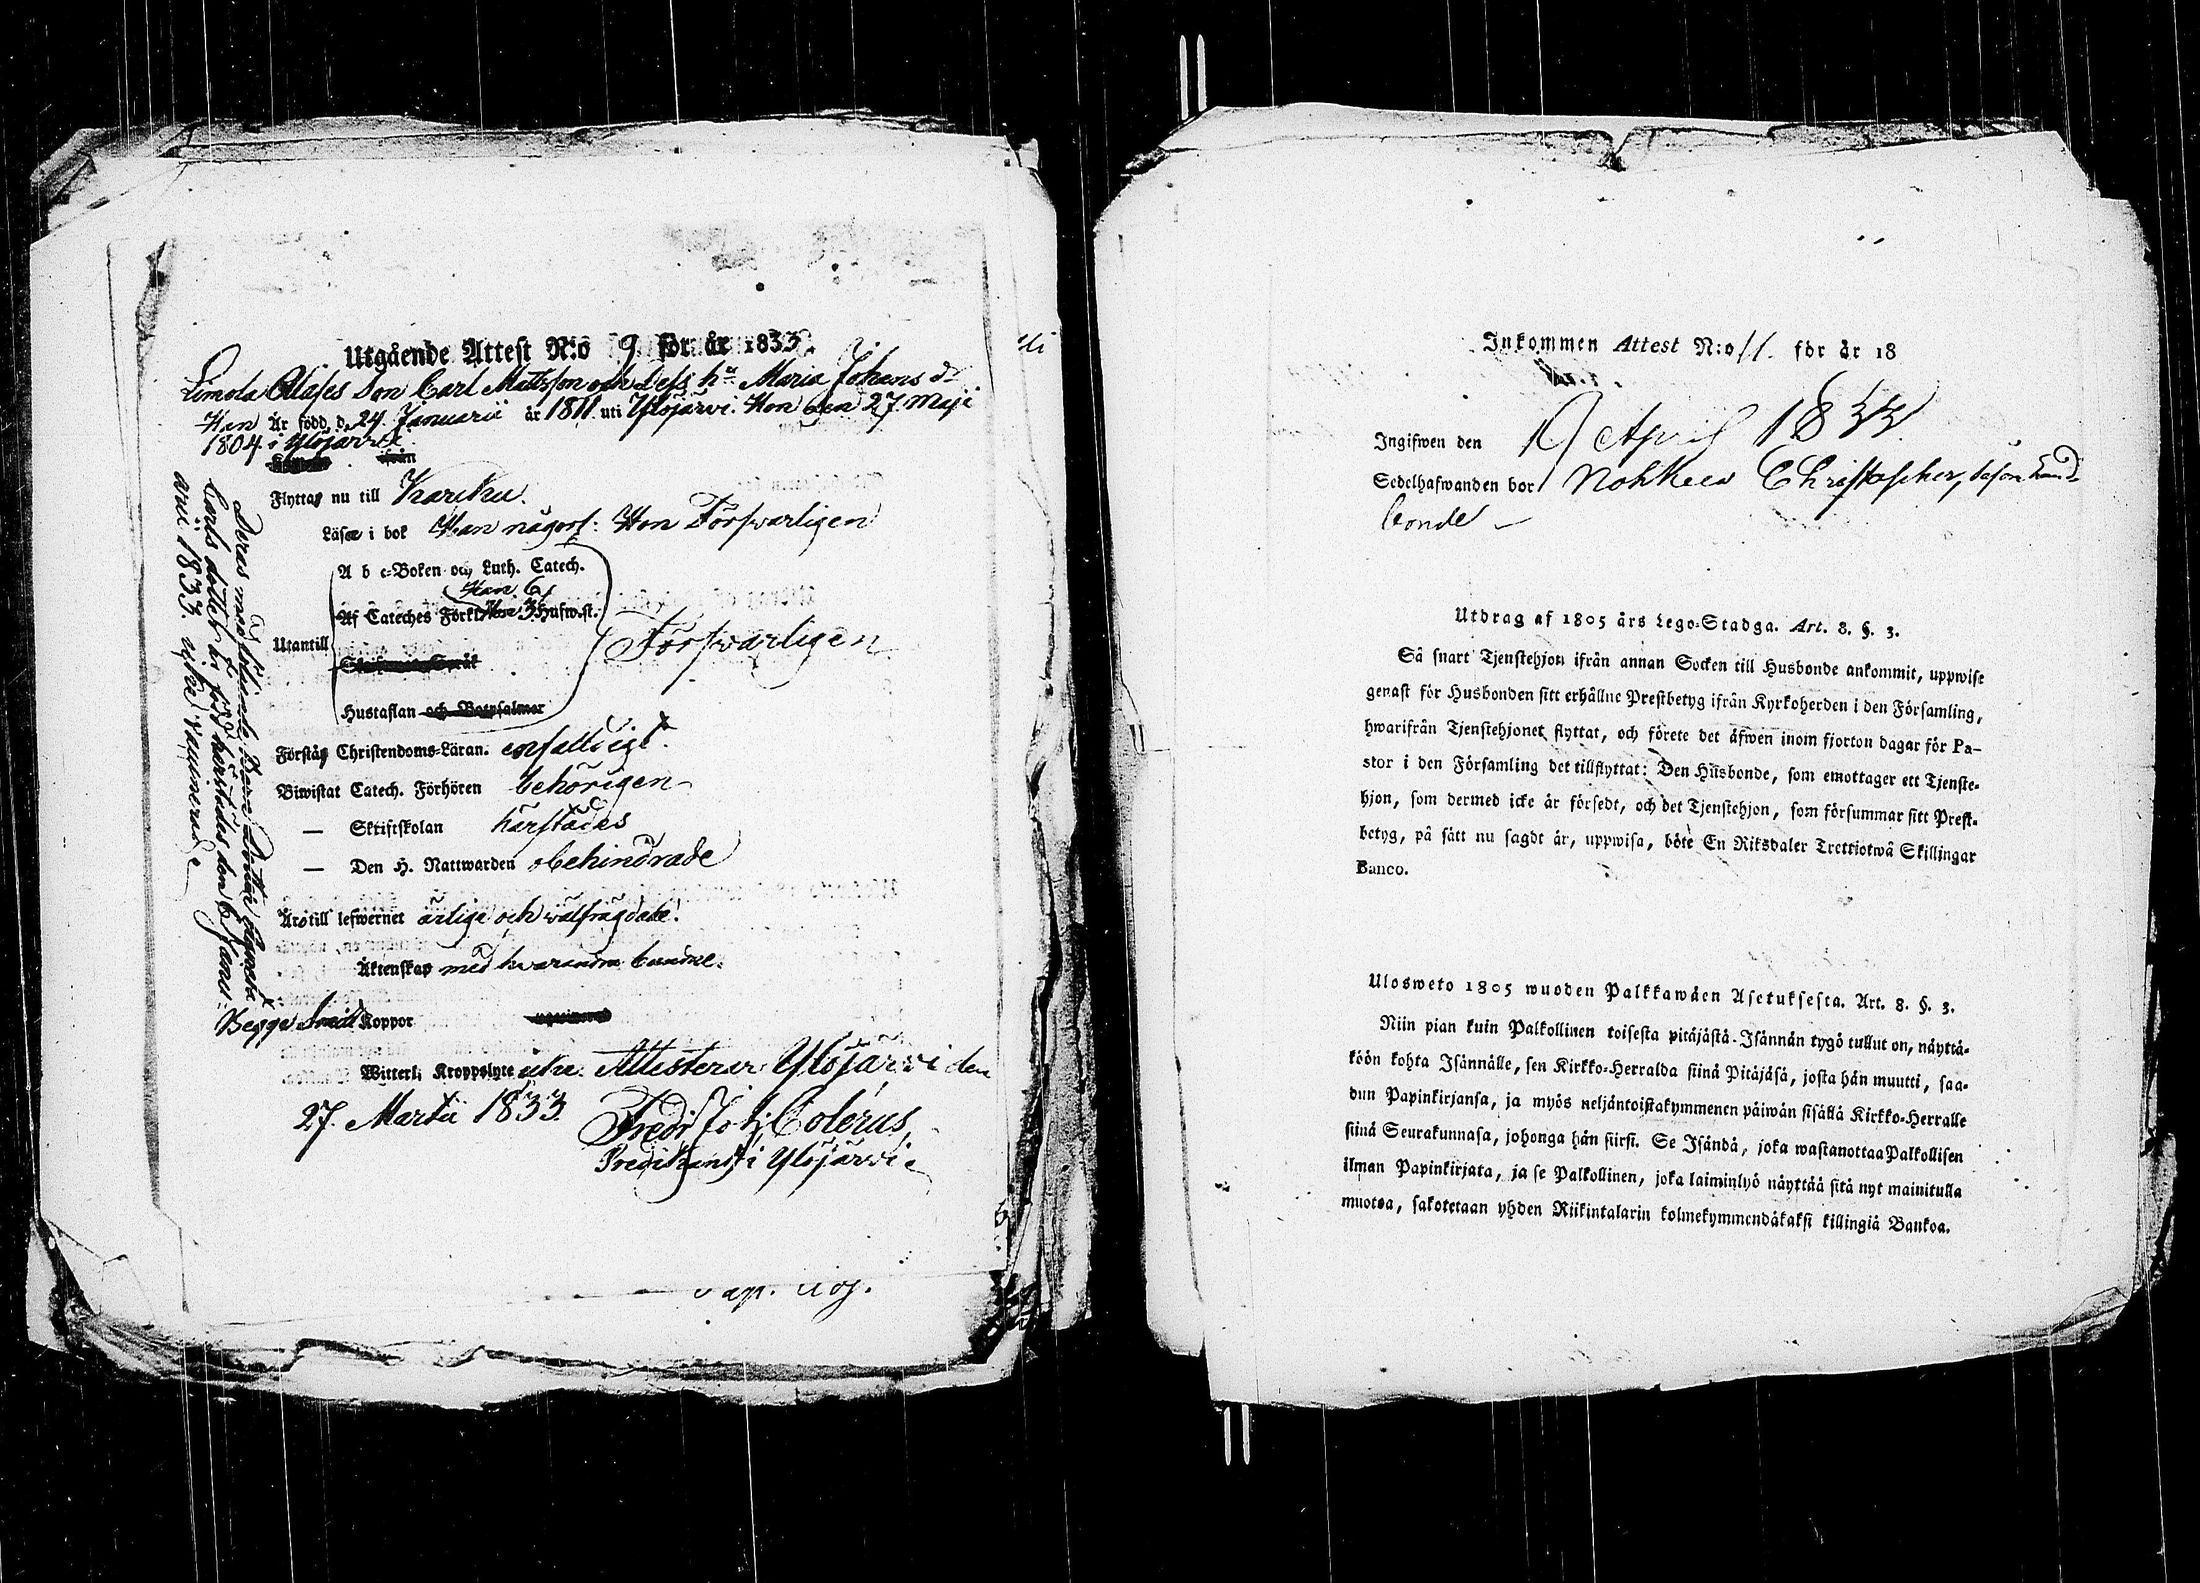 Utgående Attest N:o 9 för år 1833.
Limola Clases Son Carl Mattsson och Dess hu Maria Johans dr
Han Är född d. 24 Januarii år 1811. uti Ylöjärvi. Hon den 27 Maji
1804. i Ylöjärvi.
ifrån
Flyttar nu till Karcku.
Läser i bok Han någorl: Hon Försvarligen
Utantill
A b c-Boken och Luth. Catech.
Han 6
Af Cateches Förkl. Hon 3 Husw.st.
Försvarligen
Skriftenes Språk
Hustaflan och Botpsalmer
Förstår Christendoms-Läran. enfalldigt.
Biwistat Catech. Förhören behörigen
— Skriftskolan härstädes
— Den H. Nattwarden obehindrade
Äro till lefwernet ärlige och wälfrägdade.
Äktenskap med hvarandra bundne.
Begge haft Koppor
Witterl. Kroppslyte utan. Attesterar Ylöjärvi den
27. Martii 1833. Fredr Joh: Colerus,
Predikant i Ylöjärvi
Deras medföljande Barn Dotter
Carls dotter är född härstädes den 6 Janu-
arii 1833. icke Vaccinerade
Inkommen Attest N:o 11. för år 18
Ingifwen den 19 April 1833
Sedelhafwanden bor Nohkua Christopher,
bonde
Utdrag af 1805 års Lego-Stadga. Art. 8. §. 3.
Så snart Tjenstehjon ifrån annan Socken till Husbonde ankommit, uppwise
genast för Husbonden sitt erhållne Prestbetyg ifrån Kyrkoherden i den Församling,
hwarifrån Tjenstehjonet flyttat, och förete det äfwen inom fjorton dagar för Pa-
stor i den Församling det tillflyttat: Den Husbonde, som emottager ett Tjenste-
hjon, som dermed icke är försedt, och det Tjenstehjon, som försummar sitt Prest-
betyg, på sätt nu sagdt är, uppwisa, böte En Riksdaler Trettiotwå Skillingar
Banco.
Ulosweto 1805 wuoden Palkkawäen Asetuksesta. Art. 8. §. 3.
Niin pian kuin Palkollinen toisesta pitäjästä Isännän tygö tullut on, näyttä-
köön kohta Isännälle, sen Kirkko-Herralda siinä Pitäjäsä, josta hän muutti, saa-
dun Papinkirjansa, ja myös neljäntoistakymmenen päiwän sisällä Kirkko-Herralle
siinä Seurakunnasa, johonga hän siirsi. Se Isändä, joka wastanottaa Palkollisen
ilman Papinkirjata, ja se Palkollinen, joka laiminlyö näyttää sitä nyt mainitulla
muotoa, sakotetaan yhden Riikintalarin kolmekymmendäkaksi killingiä Bankoa.